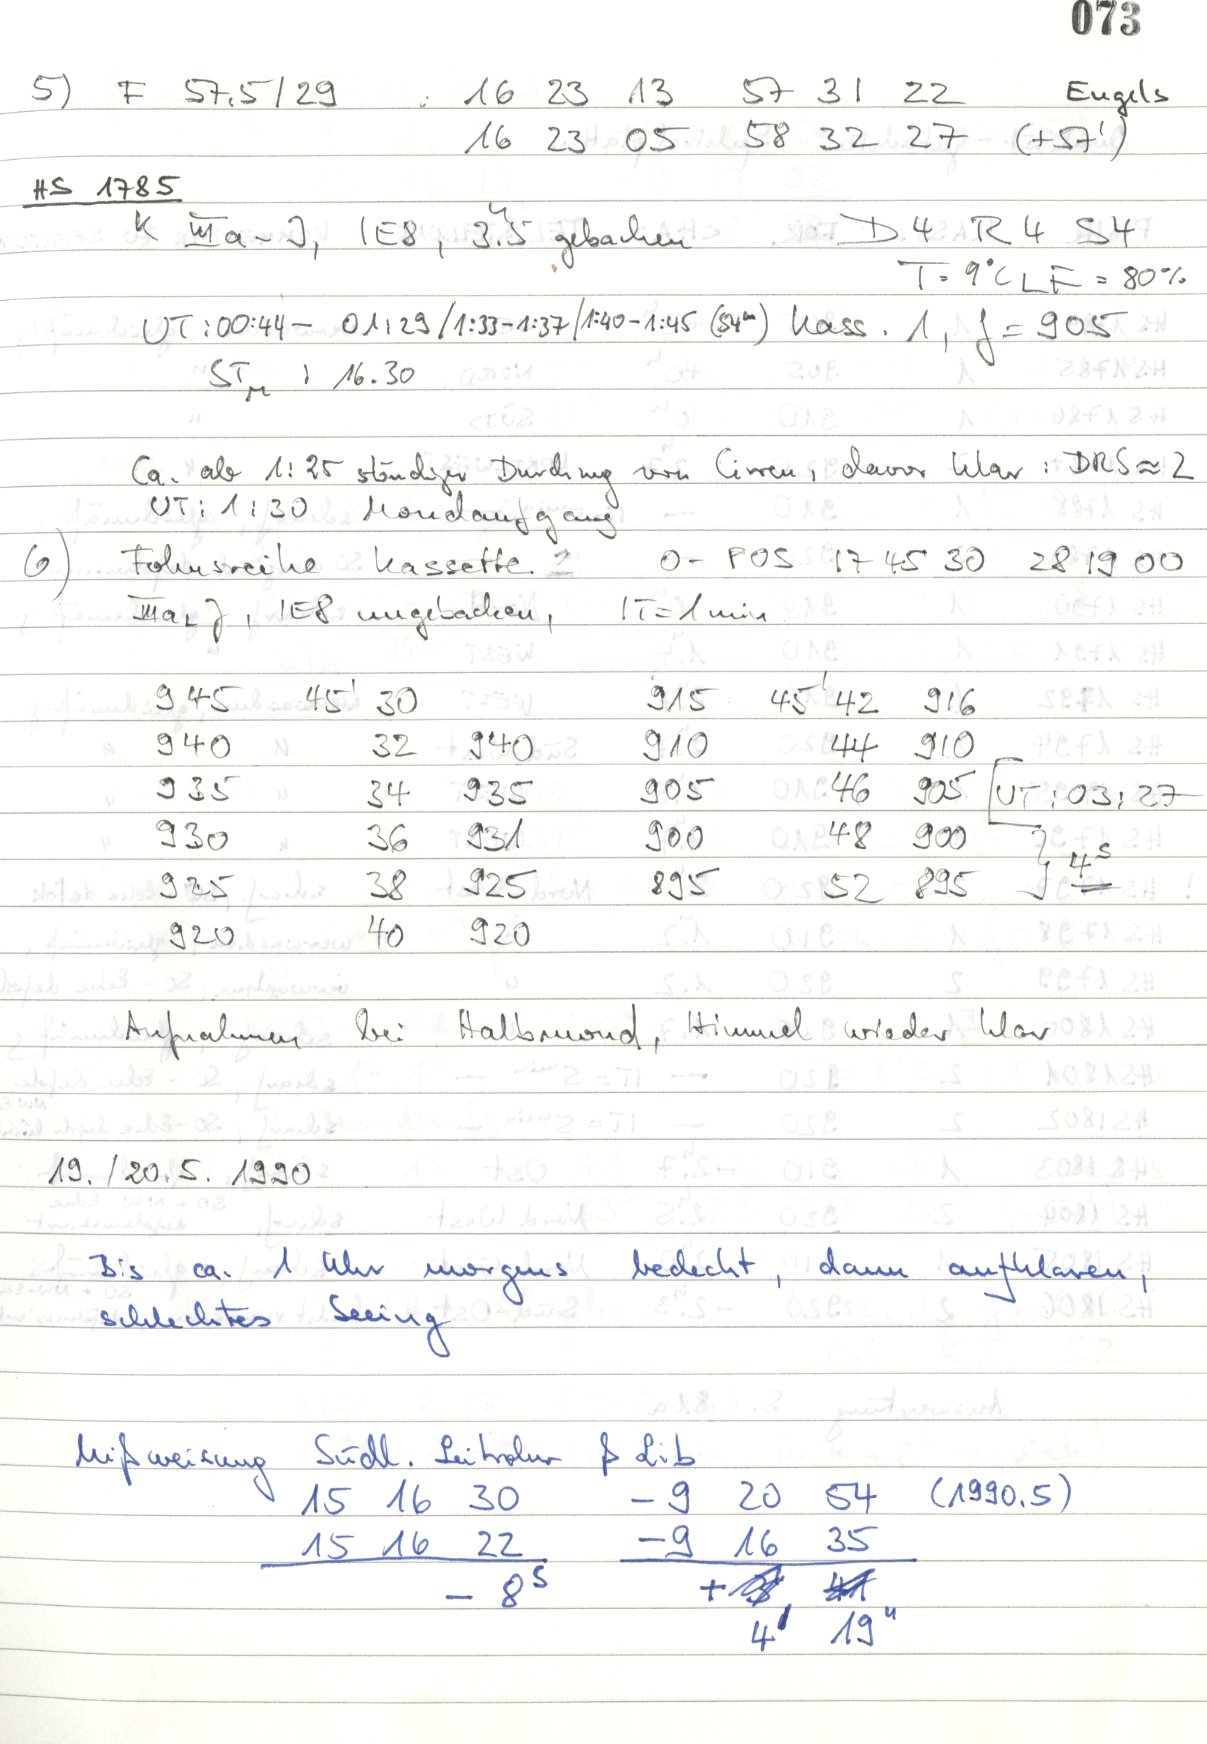 073
5) F 57.5/29 : 16 23 13 57 31 22 Engels
16 23 05 58 32 27 (+57')
HS 1785
K IIIa-J, IE8, 3.5h gebacken D4 R4 S4
T=9°C LF=80%
UT:00:44- 01:29/1:33-1:37/1:40-1:45 (54m) Kass. 1, f=905
STM : 16.30
Ca. ab 1:25 ständiger Durchzug von Cirren, davor klar : DRS≈2
UT: 1:30 Mondaufgang
6) Fokusreihe Kassette 2 0-POS 17 45 30 28 19 00
IIIa-J, IE8 ungebacken, IT=1min
945 45' 30 915 45' 42 916
940 32 940 910 44 910
935 34 935 905 46 905 [UT:03:27
930 36 931 900 48 900
925 38 925 895 52 895 } 4s
920 40 920
Aufnahmen bei Halbmond, Himmel wieder klar
19./20.5. 1990
Bis ca. 1 Uhr morgens bedeckt, dann aufklaren,
schlechtes Seeing
Mißweisung Südl. Leitrohr β Lib
15 16 30 -9 20 54 (1990.5)
15 16 22 -9 16 35
- 8s + 41
4' 19"